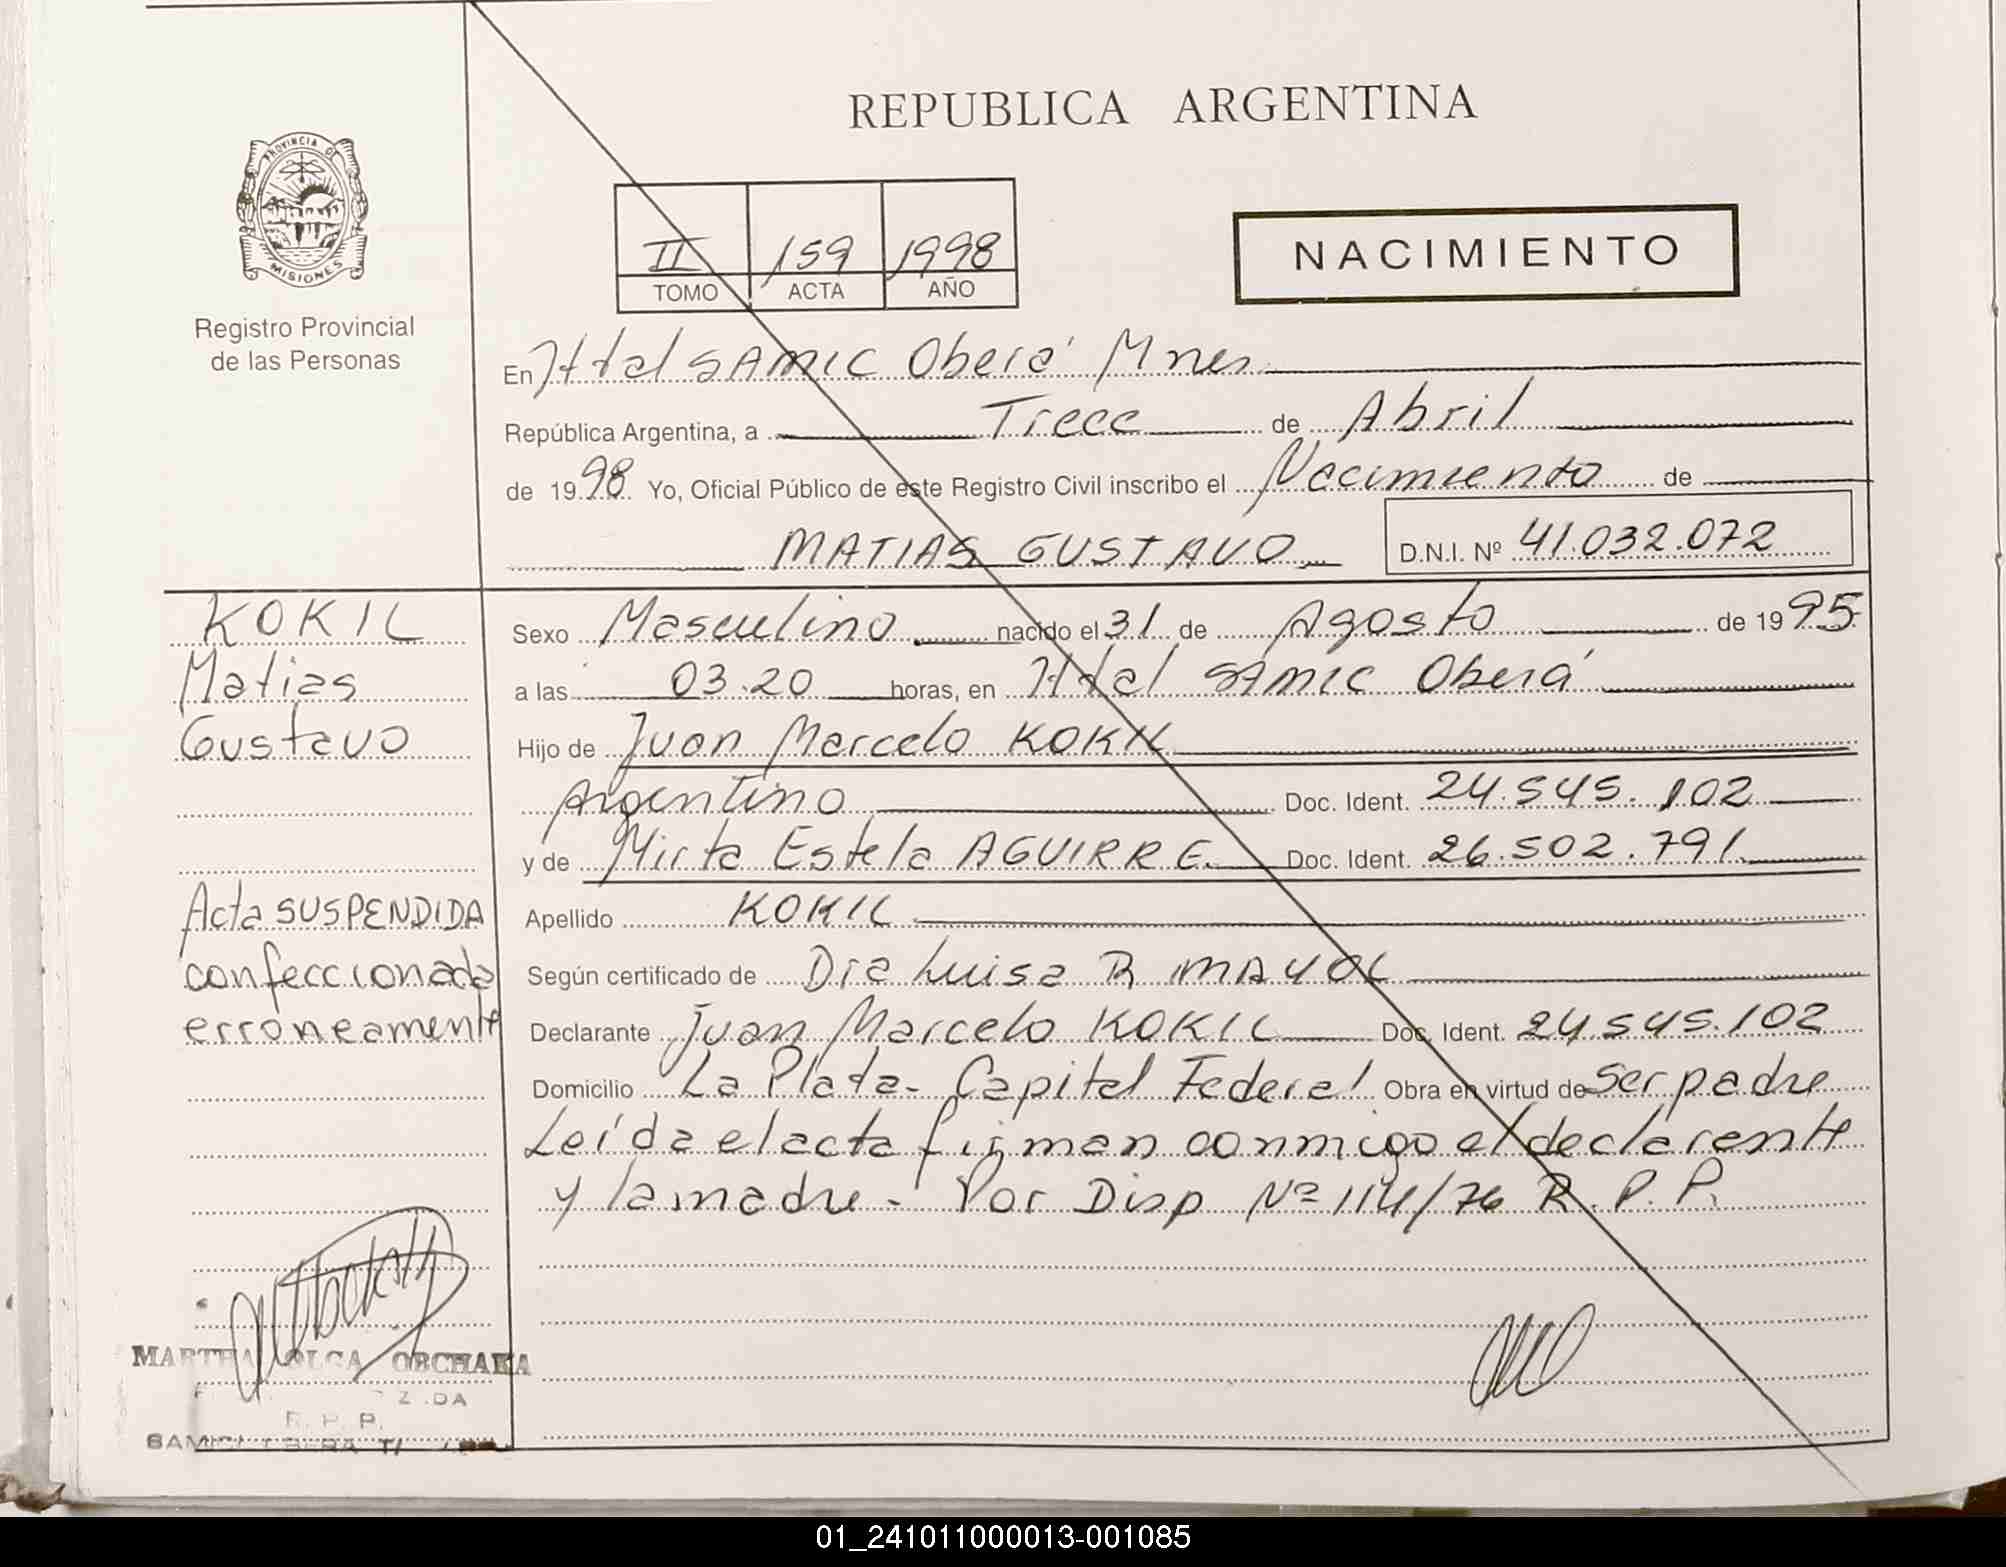 REPUBLICA ARGENTINA
PROVINCIA DE
MISIONES
Registro Provincial
de las Personas
II 159 1998
TOMO ACTA AÑO
NACIMIENTO
En Htal SAMIC Oberá Mnes
República Argentina, a Trece de Abril
de 1998 Yo, Oficial Público de este Registro Civil inscribo el Nacimiento de
MATIAS GUSTAVO D.N.I. Nº 41.032.072
KOKIL
Matias
Gustavo
Acta SUSPENDIDA
confeccionada
erróneamente
Sexo Masculino nacido el 31 de Agosto de 1995
a las 03.20 horas, en Htal SAMIC Oberá
Hijo de Juan Marcelo KOKIL
Argentino Doc. Ident. 24.545.102
y de Mirta Estela AGUIRRE Doc. Ident. 26.502.791
Apellido KOKIL
Según certificado de Dra Luisa R MAYOL
Declarante Juan Marcelo KOKIL Doc. Ident. 24.545.102
Domicilio La Plata - Capital Federal Obra en virtud de ser padre
Leída el acta firman conmigo el declarante
y la madre - Por Disp Nº 114/76 R.P.P.
MARTHA OLGA
R. P. P.
01_241011000013-001085